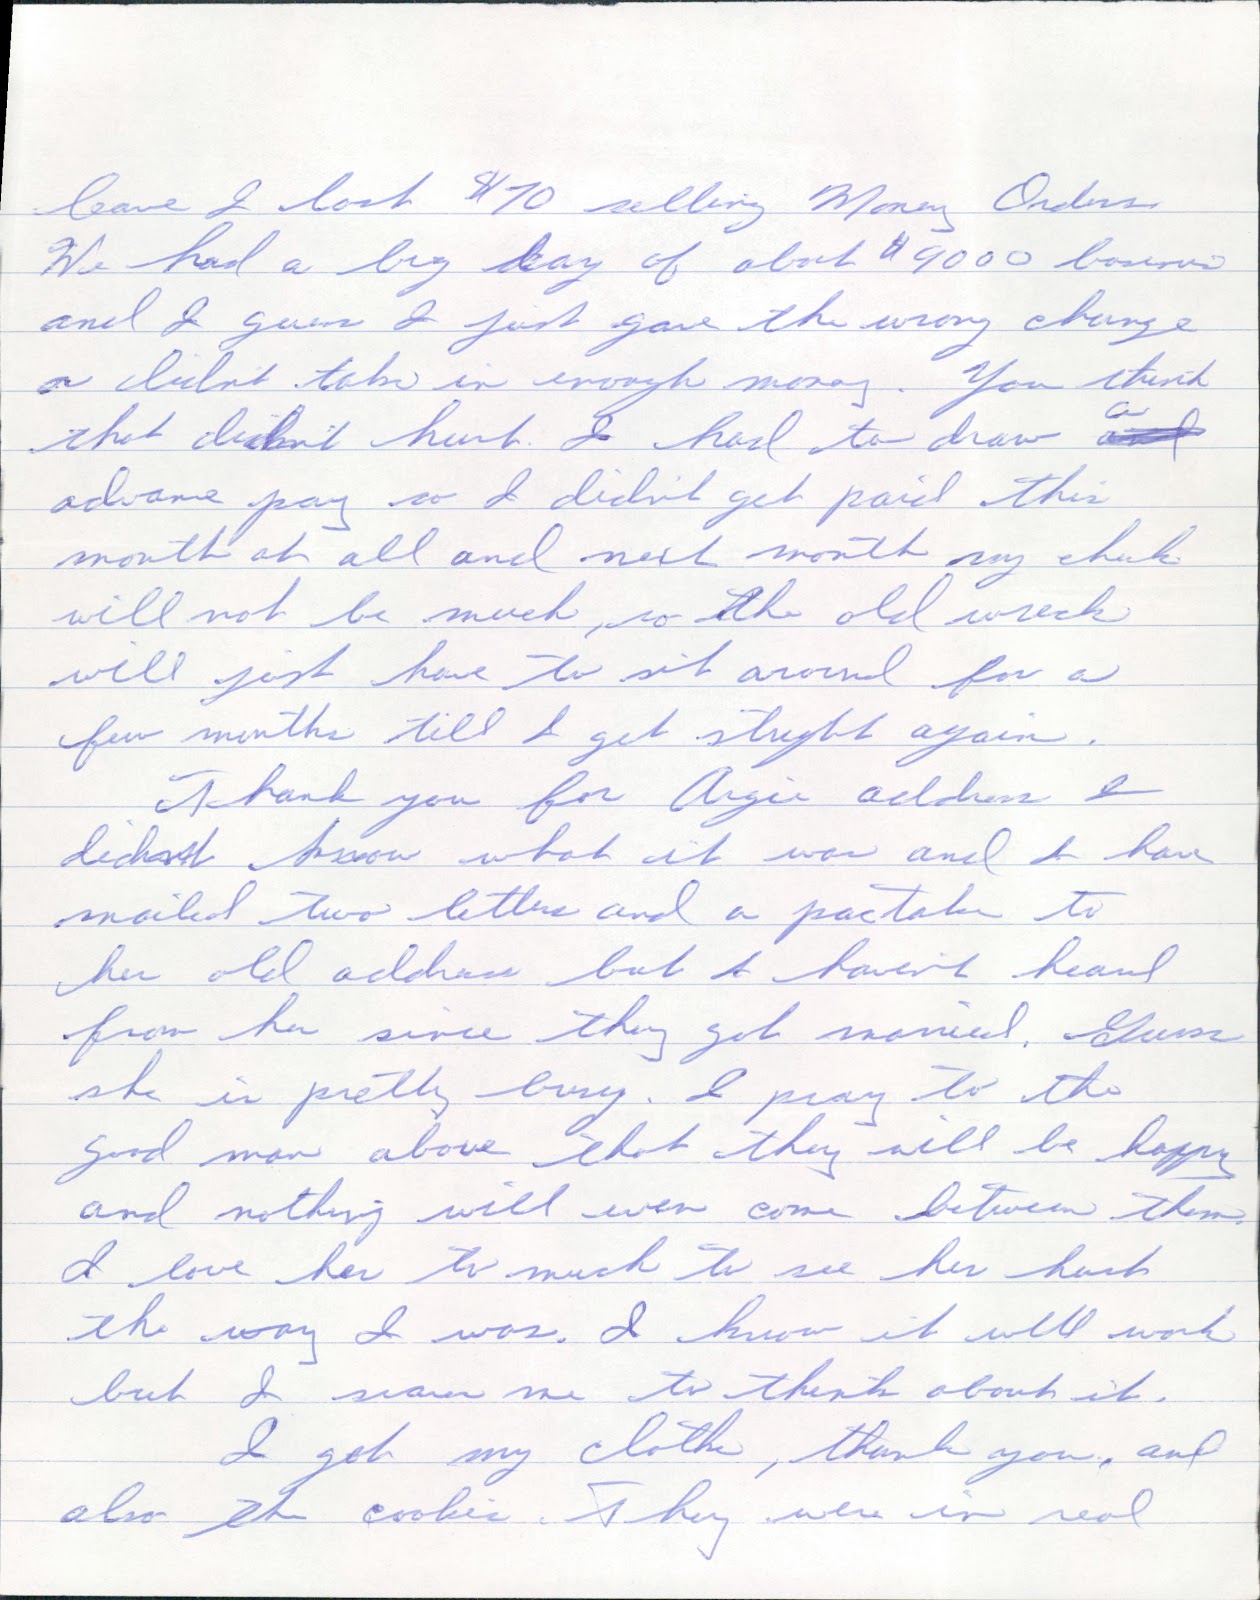 leave I lost $70 selling Money Orders
We had a big day of about $9000 business
and I guess I just gave the wrong change
or didn't take in enough money. You think
that didn't hurt. I had to draw a
advance pay so I didn't get paid this
month at all and next month my check
will not be much, so the old wreck
will just have to sit around for a
few months till I get stryht again.
Thank you for Argie address I
didn't know what it was and I have
mailed two letters and a pactake to
her old address but I haven't heard
from her since they got married. Guess
she is pretty busy. I pray to the
good man above that they will be happy
and nothing will ever come between them.
I love her to much to see her hurt
the way I was. I know it will work
but I scares me to think about it.
I got my clothe, thank you, and
also the cookies. They were in real